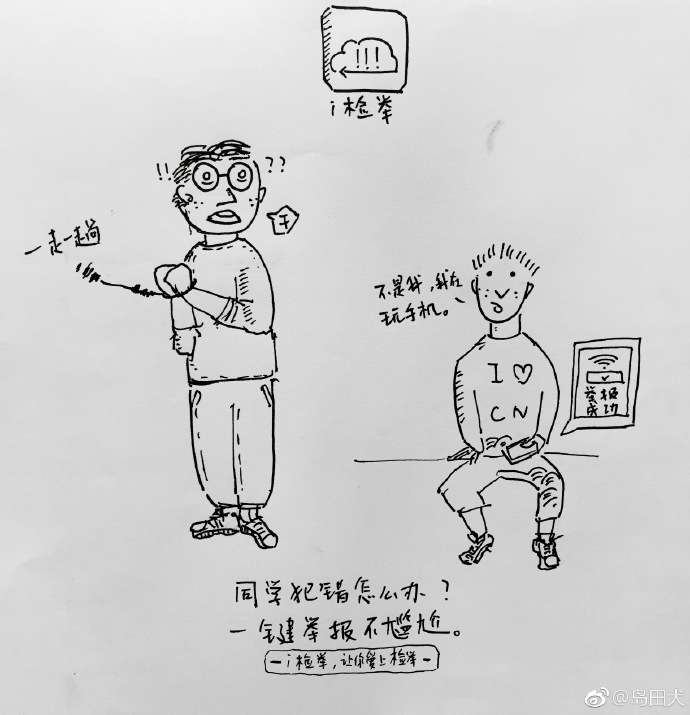 !!!
i 检举
!! ??
一走一趟
不是我，我在
玩手机。
I ♡
CN
举报
成功
同学犯错怎么办？
一键举报不尴尬。
- i 检举，让你爱上检举 -
@岛田犬